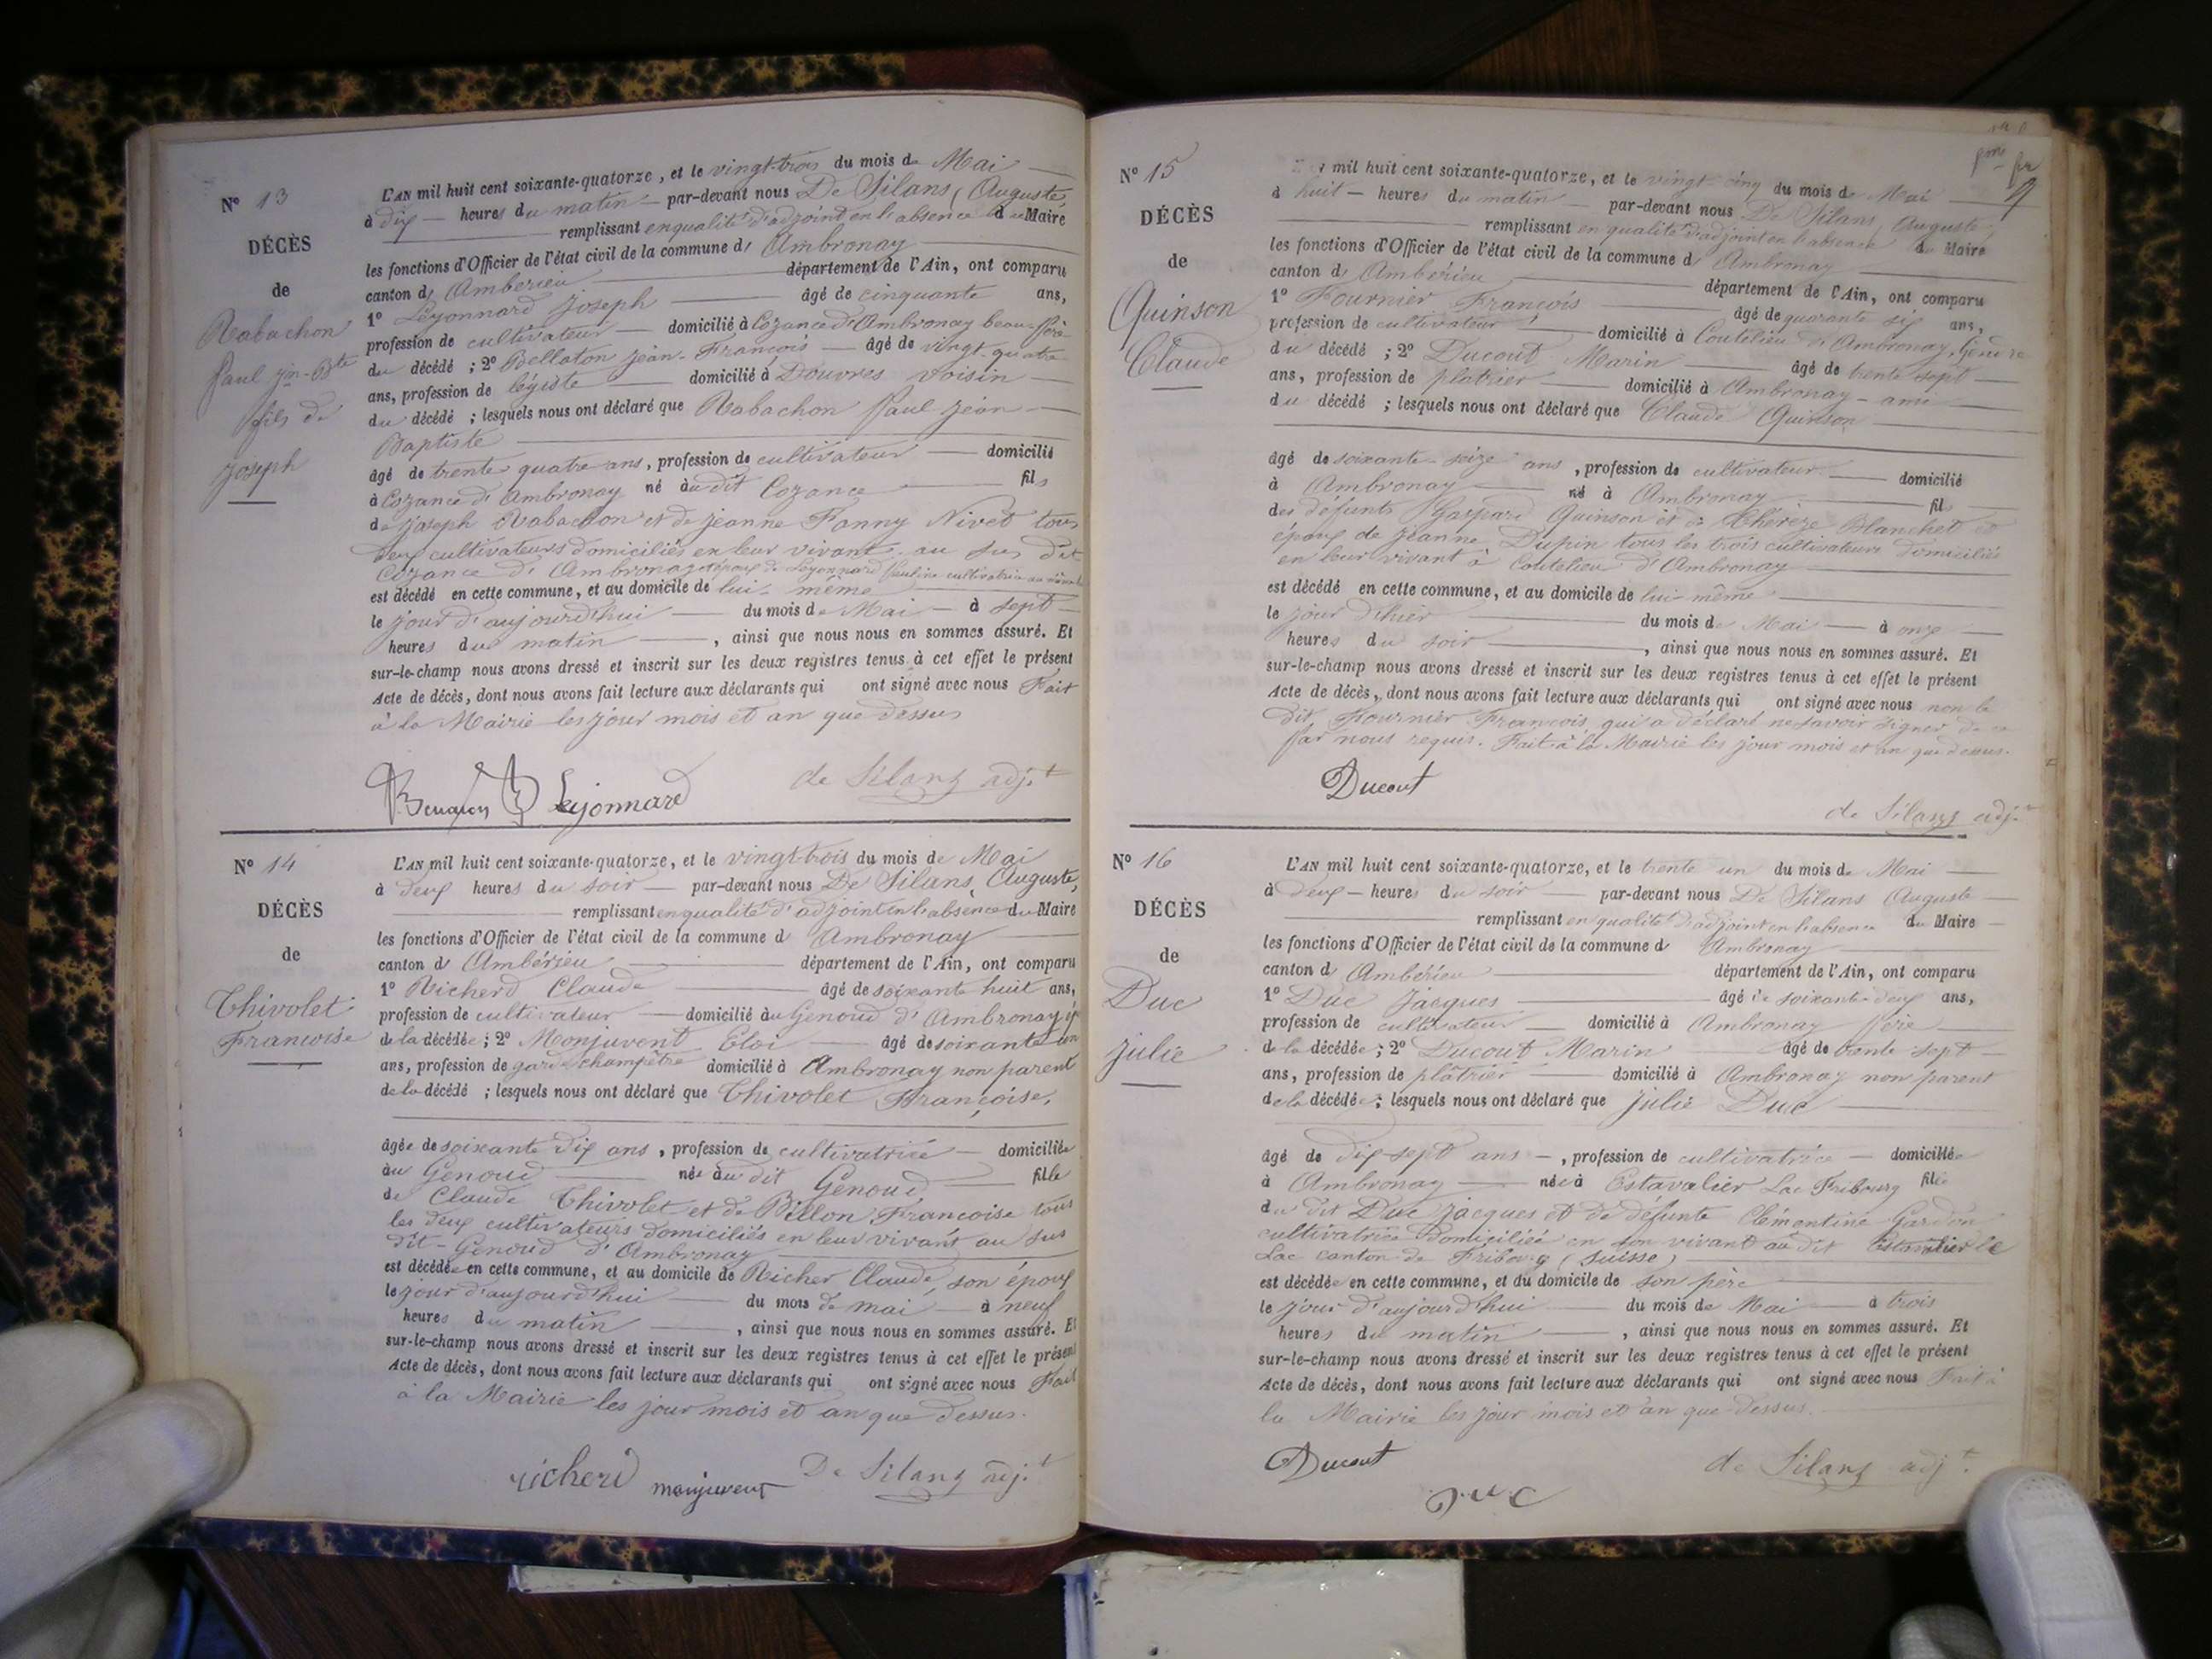 N° 13
DÉCÈS
de
Rabachon
Paul Jn-Bte
fils de
Joseph
L'AN mil huit cent soixante-quatorze, et le vingt-trois du mois de Mai
à dix heures du matin par-devant nous De Silans, Auguste,
remplissant en qualité d'adjoint en l'absence du Maire
les fonctions d'Officier de l'état civil de la commune d' Ambronay
canton d' Amberieu département de l'Ain, ont comparu
1° Leyonnard Joseph âgé de cinquante ans,
profession de cultivateur domicilié à Cozance d'Ambronay beau-père
du décédé ; 2° Bellaton Jean-François âgé de vingt-quatre
ans, profession de légiste domicilié à Douvres voisin
du décédé ; lesquels nous ont déclaré que Rabachon Paul Jean
Baptiste
âgé de trente quatre ans, profession de cultivateur domicilié
à Cozance d'Ambronay né au dit Cozance fils
de Joseph Rabachon et de Jeanne Fanny Nivet tous
deux cultivateurs domiciliés en leur vivant au sus dit
Cozance d'Ambronay époux de Leyonnard Pauline cultivatrice au même lieu
est décédé en cette commune, et au domicile de lui-même
le jour d'aujourd'hui du mois de Mai à sept
heures du matin , ainsi que nous nous en sommes assuré. Et
sur-le-champ nous avons dressé et inscrit sur les deux registres tenus à cet effet le présent
Acte de décès, dont nous avons fait lecture aux déclarants qui ont signé avec nous Fait
à la Mairie les jour mois et an que dessus
Leyonnard de Silans adjt
N° 14
DÉCÈS
de
Thivolet
Françoise
L'AN mil huit cent soixante-quatorze, et le vingt-trois du mois de Mai
à deux heures du soir par-devant nous De Silans, Auguste,
remplissant en qualité d'adjoint en l'absence du Maire
les fonctions d'Officier de l'état civil de la commune d' Ambronay
canton d' Ambérieu département de l'Ain, ont comparu
1° Richerd Claude âgé de soixante huit ans,
profession de cultivateur domicilié au Genoud d'Ambronay
de la décédée ; 2° Monjuvent Eloi âgé de soixante un
ans, profession de garde champêtre domicilié à Ambronay non parent
de la décédé ; lesquels nous ont déclaré que Thivolet Françoise,
âgée de soixante dix ans, profession de cultivatrice domiciliée
au Genoud née au dit Genoud fille
de Claude Thivolet et de Billon Françoise tous
les deux cultivateurs domiciliés en leur vivant au sus
dit-Genoud d'Ambronay
est décédée en cette commune, et au domicile de Richer Claude, son époux
le jour d'aujourd'hui du mois de mai à neuf
heures du matin , ainsi que nous nous en sommes assuré. Et
sur-le-champ nous avons dressé et inscrit sur les deux registres tenus à cet effet le présent
Acte de décès, dont nous avons fait lecture aux déclarants qui ont signé avec nous Fait
à la Mairie les jour mois et an que dessus.
richerd monjuvent De Silans adjt
N° 15
DÉCÈS
de
Quinson
Claude
mil huit cent soixante-quatorze, et le vingt-cinq du mois de Mai
à huit heures du matin par-devant nous De Silans, Auguste
remplissant en qualité d'adjoint en l'absence du Maire
les fonctions d'Officier de l'état civil de la commune d' Ambronay
canton d' Ambérieu département de l'Ain, ont comparu
1° Fournier François âgé de quarante six ans,
profession de cultivateur domicilié à Coutelieu d'Ambronay, Gendre
du décédé ; 2° Ducout Marin âgé de trente sept
ans, profession de plâtrier domicilié à Ambronay - ami
du décédé ; lesquels nous ont déclaré que Claude Quinson
âgé de soixante-seize ans, profession de cultivateur domicilié
à Ambronay né à Ambronay fils
des défunts Gaspard Quinson et de Thérèze Blanchet et
époux de Jeanne Dupin tous les trois cultivateurs domiciliés
en leur vivant à Coutelieu d'Ambronay
est décédé en cette commune, et au domicile de lui-même
le jour d'hier du mois de Mai à onze
heures du soir , ainsi que nous nous en sommes assuré. Et
sur-le-champ nous avons dressé et inscrit sur les deux registres tenus à cet effet le présent
Acte de décès, dont nous avons fait lecture aux déclarants qui ont signé avec nous non le
dit Fournier François qui a déclaré ne savoir signer de ce
par nous requis. Fait à la Mairie les jour mois et an que dessus.
Ducout
de Silans adjt
N° 16
DÉCÈS
de
Duc
Julie
L'AN mil huit cent soixante-quatorze, et le trente un du mois de Mai
à deux heures du soir par-devant nous De Silans Auguste
remplissant en qualité d'adjoint en l'absence du Maire
les fonctions d'Officier de l'état civil de la commune d' Ambronay
canton d' Ambérieu département de l'Ain, ont comparu
1° Duc Jacques âgé de soixante-deux ans,
profession de cultivateur domicilié à Ambronay Père
de la décédée ; 2° Ducout Marin âgé de trente sept
ans, profession de plâtrier domicilié à Ambronay non parent
de la décédée ; lesquels nous ont déclaré que Julie Duc
âgé de dix sept ans, profession de cultivatrice domiciliée
à Ambronay née à Estavalier Lac Fribourg fille
du dit Duc Jacques et de défunte Clémentine Gardon
cultivatrice domiciliée en son vivant au dit Estavalier le
Lac canton de Fribourg (Suisse)
est décédée en cette commune, et du domicile de son père
le jour d'aujourd'hui du mois de Mai à trois
heures du matin , ainsi que nous nous en sommes assuré. Et
sur-le-champ nous avons dressé et inscrit sur les deux registres tenus à cet effet le présent
Acte de décès, dont nous avons fait lecture aux déclarants qui ont signé avec nous Fait à
la Mairie les jour mois et an que dessus.
Ducout de Silans adjt.
Duc